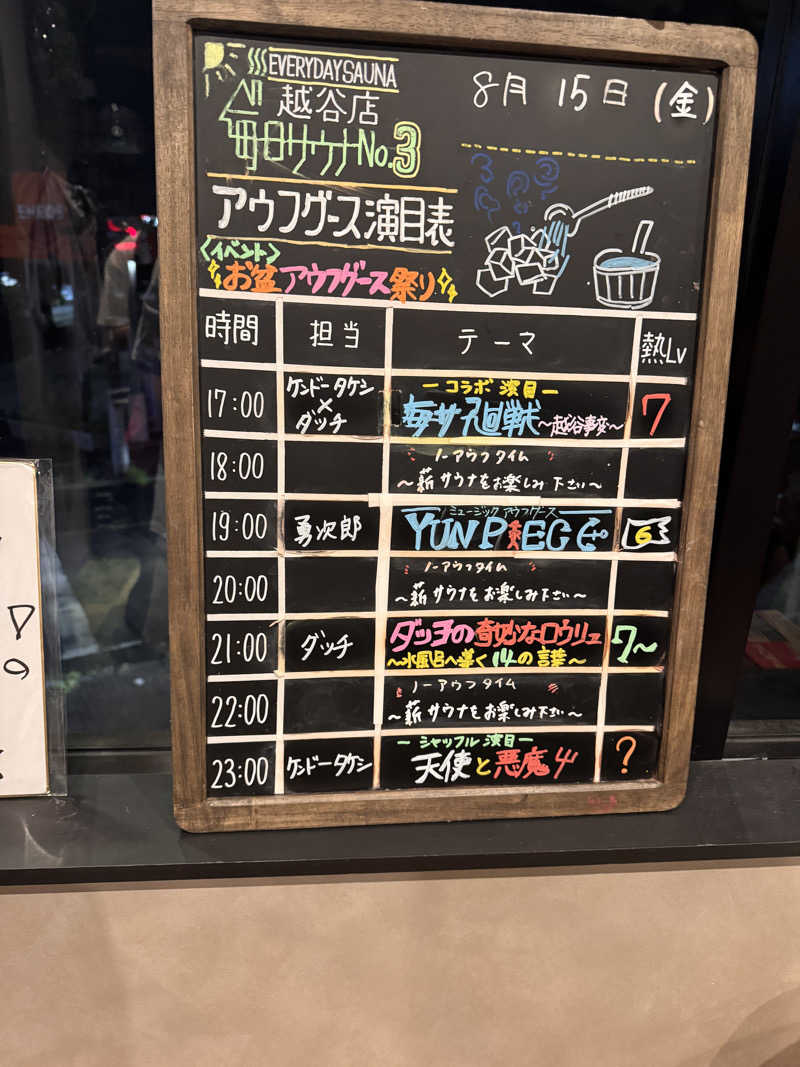 EVERYDAY SAUNA
越谷店
毎日サウナNo.3
8月 15日 (金)
アウフグース演目表
〈イベント〉
お盆アウフグース祭り
時間 担当 テーマ 熱Lv
17:00 ケンドータケシ×ダッチ ーコラボ 演目ー
毎サ廻戦 〜越谷事変〜 7
18:00 ノーアウフタイム
〜薪サウナをお楽しみ下さい〜
19:00 勇次郎 ミュージック アウフグース
YUN PIECE 6
20:00 ノーアウフタイム
〜薪サウナをお楽しみ下さい〜
21:00 ダッチ ダッチの奇妙なロウリュ
〜水風呂へ導く14の言葉〜 7〜
22:00 ノーアウフタイム
〜薪サウナをお楽しみ下さい〜
23:00 ケンドータケシ ーシャッフル 演目ー
天使と悪魔 ?
ENEOS